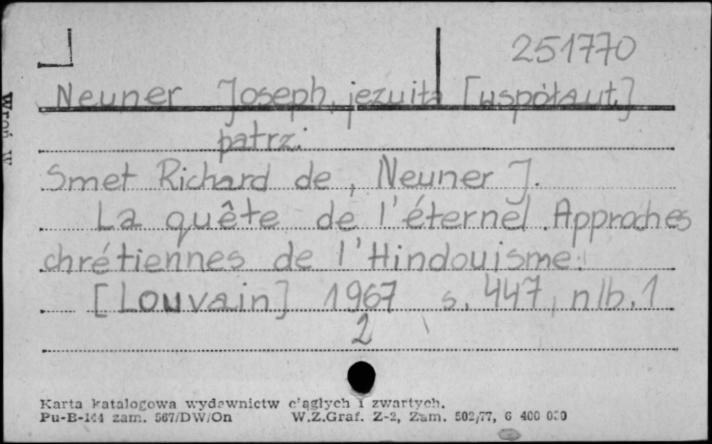 251770
Neuner Joseph, jezuita [współaut.]
patrz:
Smet Richard de, Neuner J.
La quête de l'éternel. Approches
chrétiennes de l'Hindouisme.
[Louvain] 1967 s. 447, nlb. 1
2
Karta katalogowa wydawnictw ciągłych i zwartych.
Pu-B-144 zam. 567/DW/On W.Z.Graf. Z-2, Zam. 502/77, 6 400 000